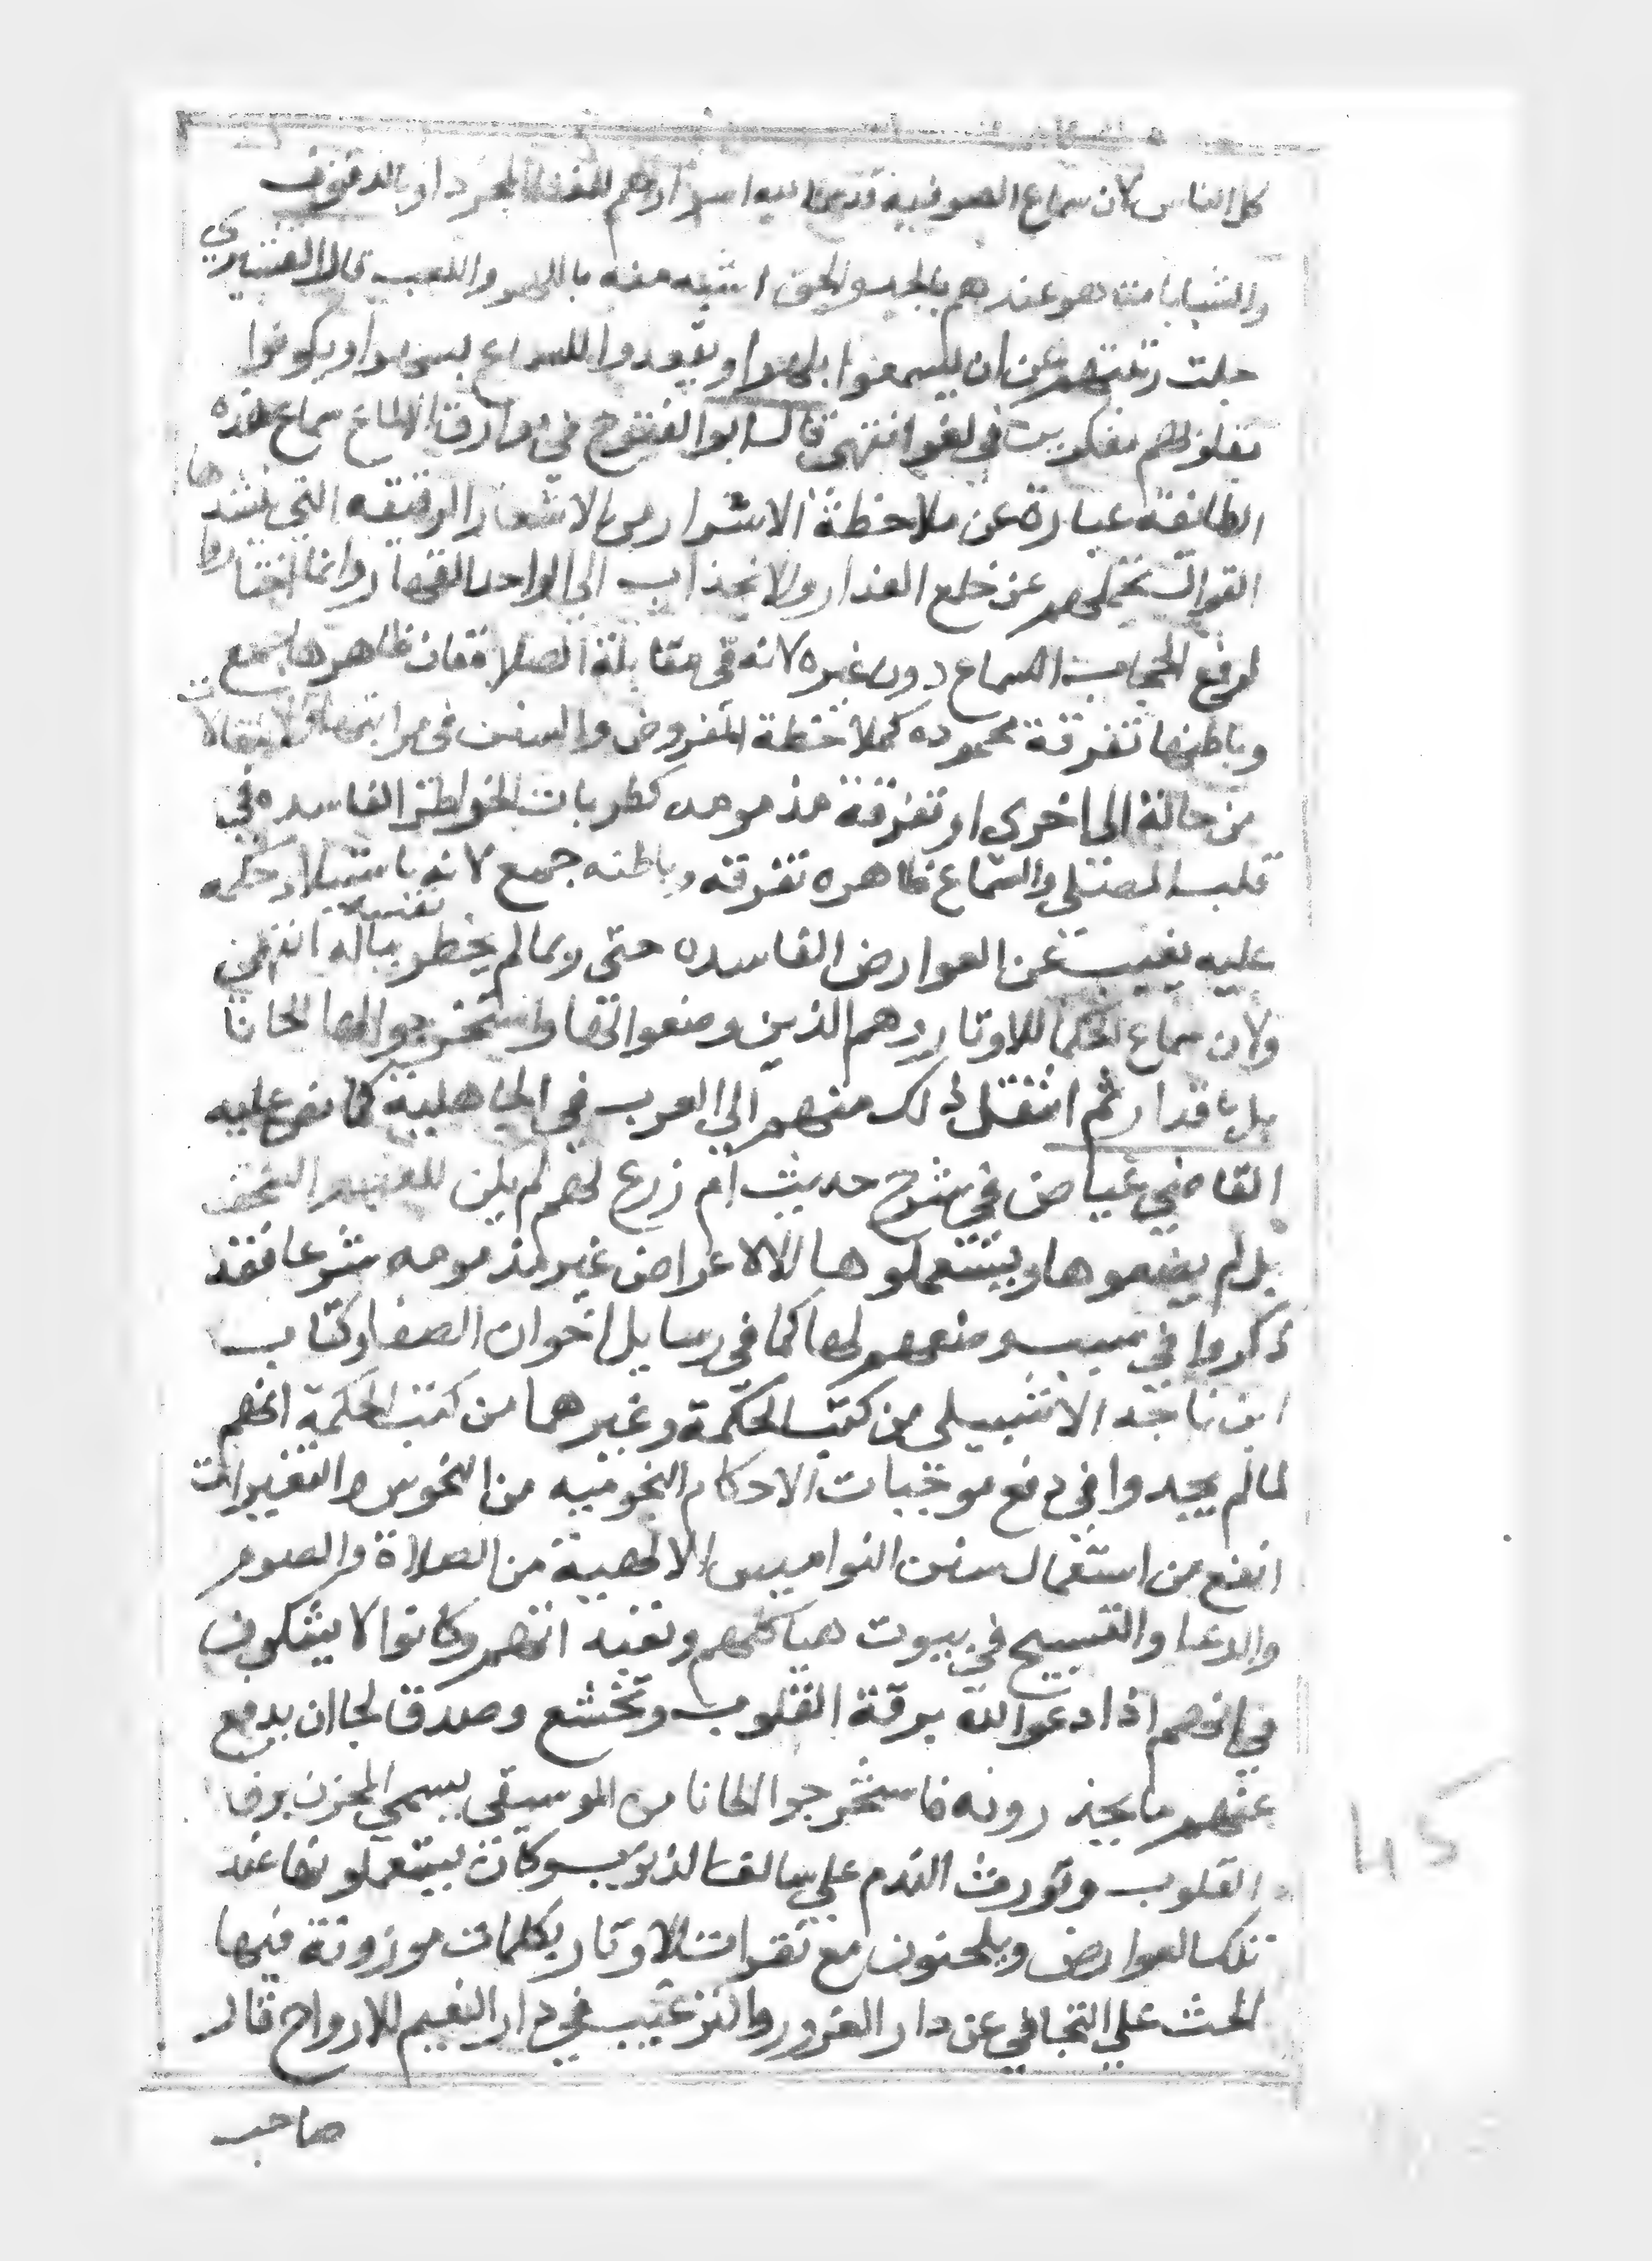 كل الناس لان سماع الصوفية اسرارهم او بالدفوف
والشبابات هو عندهم بالجد والحق اشبه منه باللهو واللعب قال القشيري
جلت رتبتهم عن ان يسمعوا بلهو او يقعدوا للسماع بسهو او يكونوا
بقلوبهم مفكرين في لغو انتهى قال ابو الفتوح في بوارق الالماع سماع هذه
الطائفة عبارة عن ملاحظة الاسرار من الاشعار الرقيقه التي ينشدها
القوال عن خلع العذار والانجذاب الى الواحد القهار وانما اختاروا
لرفع الحجاب السماع دون غيره لانه في مقابلة الصلاة فان ظاهرها جمع
وباطنها تفرقة محموده كملاحظة الفروض والسنن في مراتبها والانتقالات
من حالة الى اخرى او تفرقة مذمومه كطربات الخواطر الفاسده في
قلب المصلي والسماع ظاهره تفرقه وباطنه جمع لانه باستيلا حكمه
عليه يغيب عن العوارض الفاسده حتى ربما لم يخطر بباله نفسه انتهى
ولان سماع الحكما للاوتار وهم الذين وضعوا لها واستخرجوا لها الحانا
بل باقدار ثم انتقل ذلك منهم الى العرب في الجاهلية كما نص عليه
القاضي عياض في شرح حديث ام زرع لهم لم يكن
بل لم يضعوها ويستعملوها الا لاعراض غير مذمومه شرعا فقد
ذكروا في سبب وضعهم لها كما في رسايل اخوان الصفا وكتاب
ابن ناجه الاشبيلي من كتب الحكمة وغيرهما من كتب الحكمة انهم
لما لم يجدوا في دفع موجبات الاحكام النجوميه من النحوس والتغييرات
انفع من استعمال سنن النواميس الالهية من الصلاة والصوم
والدعا والتسبيح في بيوت هياكلهم وكانوا لا يشكون
في انهم اذا دعوا الله برقة القلوب وتخشع وصدق لجا ان يدفع
عنهم ما يحذرونه فاستخرجوا الحانا من الموسيقى يسمى المحزن يرقق
القلوب وتورث الندم على سالف الذنوب وكان يستعملونها عند
تلك العوارض ويلحنون مع نقرات الاوتار بكلمات موزونة فيها
الحث على التجافي عن دار الغرور والترغيب في دار النعيم للارواح قال
صاحب
45